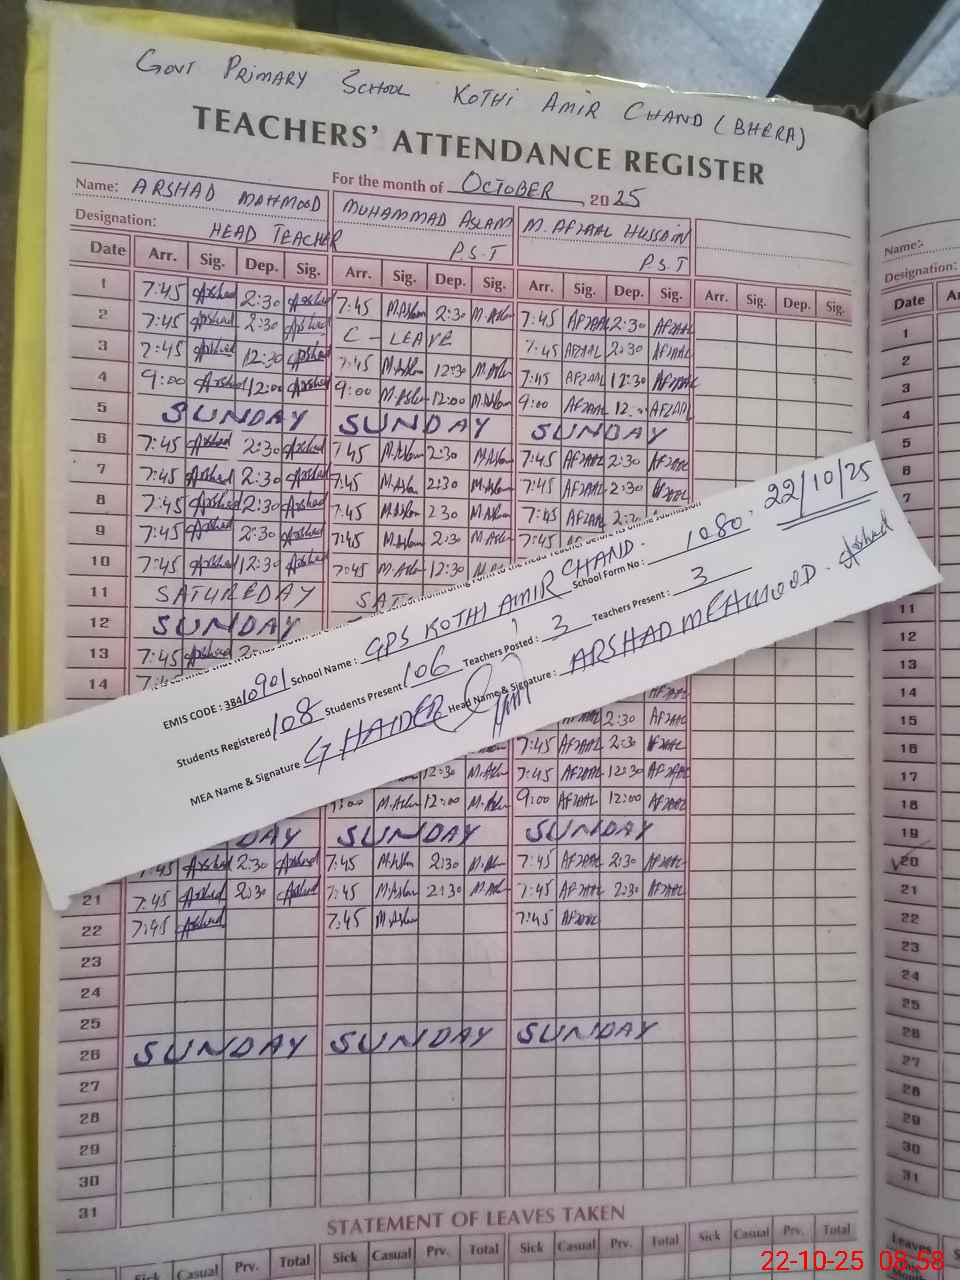 GOVT PRIMARY SCHOOL KOTHI AMIR CHAND (BHERA)
TEACHERS' ATTENDANCE REGISTER
For the month of OCTOBER 2025
Name: ARSHAD MAHMOOD MUHAMMAD ASLAM M. AFZAAL HUSSAIN
Designation: HEAD TEACHER P.S.T P.S.T
Date Arr. Sig. Dep. Sig. Arr. Sig. Dep. Sig. Arr. Sig. Dep. Sig. Arr. Sig. Dep. Sig.
1 7:45 Arshad 2:30 Arshad 7:45 M.Aslam 2:30 M.Aslam 7:45 AFZAAL 2:30 AFZAAL
2 7:45 Arshad 2:30 Arshad C - LEAVE 7:45 AFZAAL 2:30 AFZAAL
3 7:45 Arshad 12:30 Arshad 7:45 M.Aslam 12:30 M.Aslam 7:45 AFZAAL 12:30 AFZAAL
4 9:00 Arshad 12:00 Arshad 9:00 M.Aslam 12:00 M.Aslam 9:00 AFZAAL 12 AFZAAL
5 SUNDAY SUNDAY SUNDAY
6 7:45 Arshad 2:30 Arshad 7:45 M.Aslam 2:30 M.Aslam 7:45 AFZAAL 2:30 AFZAAL
7 7:45 Arshad 2:30 Arshad 7:45 M.Aslam 2:30 M.Aslam 7:45 AFZAAL 2:30 AFZAAL
8 7:45 Arshad 2:30 Arshad 7:45 M.Aslam 2:30 M.Aslam 7:45 AFZAAL
9 7:45 Arshad 2:30 Arshad 7:45 M.Aslam 2:30 M.Aslam 7:45
10 7:45 Arshad 12:30 Arshad 7:45 M.Aslam 12:30
11 SATUREDAY
12 SUNDAY
13 7:45 Arshad
14
EMIS CODE : 38410901 School Name : GPS KOTHI AMIR CHAND. School Form No : 1080. 22/10/25
Students Registered 108 Students Present 106 Teachers Posted : 3 Teachers Present : 3
MEA Name & Signature G HAIDER Head Name & Signature : ARSHAD MEHMOOD. Arshad
AFZAAL
2:30 AFZAAL
7:45 AFZAAL 2:30 AFZAAL
12:30 M.Aslam 7:45 AFZAAL 12:30 AFZAAL
M.Aslam 12:00 M.Aslam 9:00 AFZAAL 12:00 AFZAAL
SUNDAY SUNDAY
7:45 Arshad 2:30 Arshad 7:45 M.Aslam 2:30 7:45 AFZAAL 2:30 AFZAAL
21 7:45 Arshad 2:30 Arshad 7:45 M.Aslam 2:30 7:45 AFZAAL 2:30 AFZAAL
22 7:45 Arshad 7:45 M.Aslam 7:45 AFZAAL
23
24
25
26 SUNDAY SUNDAY SUNDAY
27
28
29
30
31
STATEMENT OF LEAVES TAKEN
Sick Casual Prv. Total Sick Casual Prv. Total Sick Casual Prv. Total Sick Casual Prv. Total
Name:
Designation:
Date
1
2
3
4
5
6
7
11
12
13
14
15
16
17
18
19
20
21
22
23
24
25
26
27
28
29
30
31
Leaves
22-10-25 08:58